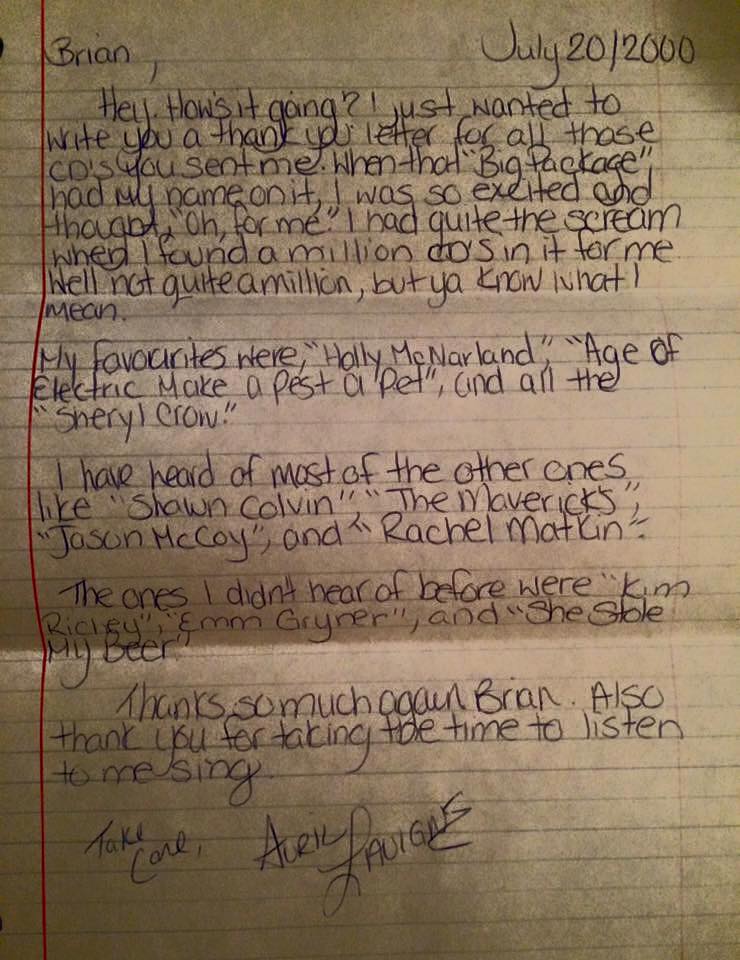 Brian, July 20/2000
Hey. How's it going? I just wanted to
write you a thank you letter for all those
CD's you sent me. When that "Big Package",
had my name on it, I was so excited and
thought, "Oh, for me." I had quite the scream
when I found a million CD's in it for me.
Well not quite a million, but ya know what I
mean.
My favourites were, "Holly McNarland", "Age of
Electric Make a Pest a Pet", and all the
"Sheryl Crow."
I have heard of most of the other ones,
like "Shawn Colvin", "The Mavericks",
"Jason McCoy", and "Rachel Matkin".
The ones I didn't hear of before were "Kim
Richey", "Emm Gryner", and "She Stole
My Beer"
Thanks so much again Brian. Also
thank you for taking the time to listen
to me sing.
Take
Care, Avril Lavigne